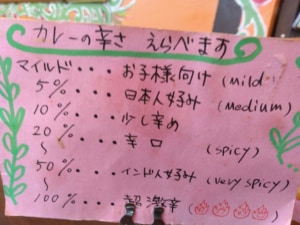 カレーの辛さ えらべます
マイルド・・・お子様向け (mild
5%・・・日本人好み (medium)
10%・・・少し辛め
20%・・・辛口 (spicy)
〜
50%・・・インド人好み (very spicy)
〜
100%・・・超激辛 (